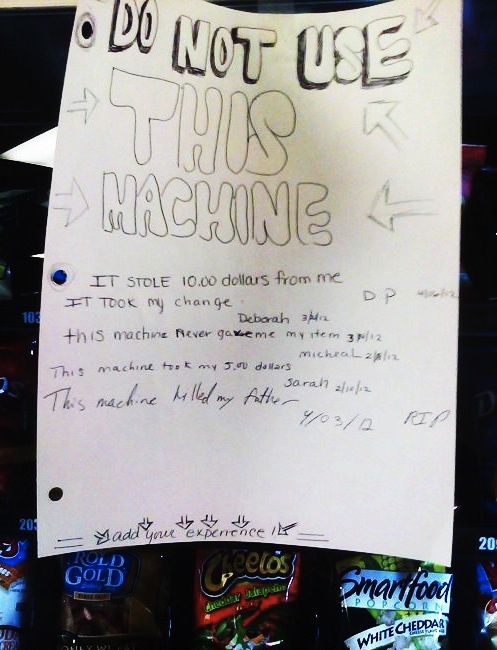 DO NOT USE
THIS
MACHINE
IT STOLE 10.00 dollars from me
DP
IT TOOK my change.
Deborah
this machine Never gave me my item
micheal
This machine took my 5.00 dollars
Sarah 2/10/12
This machine killed my father
4/03/12 RIP
add your experience!
103
203
209
ROLD
GOLD
Cheetos
Cheddar Jalapeño
Smartfood
POPCORN
WHITE CHEDDAR